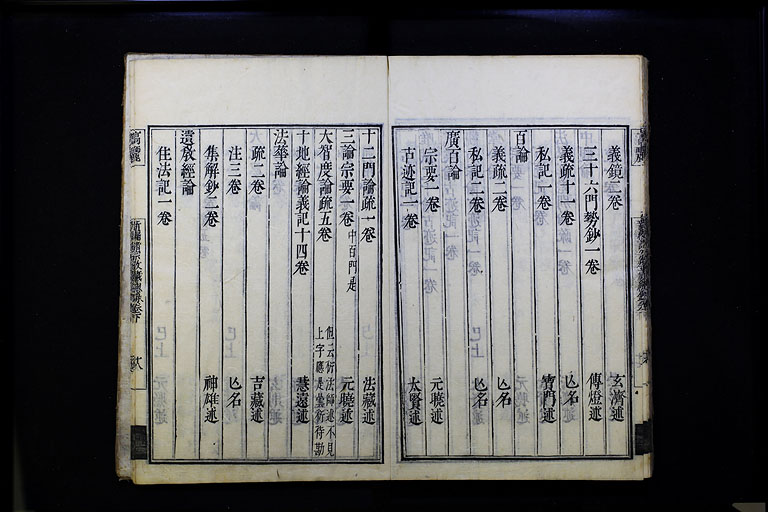 義鏡二卷 玄濟述
三十六門勢鈔一卷 傳燈述
義疏十一卷 亾名
私記一卷
百論
義疏二卷 亾名
私記二卷 亾名
廣百論
宗要一卷 元曉述
古迹記一卷 太賢述
十二門論疏一卷 法藏述
三論宗要一卷 中百門是 元曉述
大智度論疏五卷
十地經論義記十四卷 慧遠述
法華論
疏二卷 吉藏述
注三卷 亾名
集解鈔二卷 神雄述
遺敎經論
住法記一卷